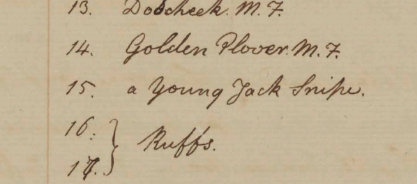 13. Dobcheek. M.F.
14. Golden Plover. M.F.
15. a Young Jack Snipe.
16. } Ruffs.
17.